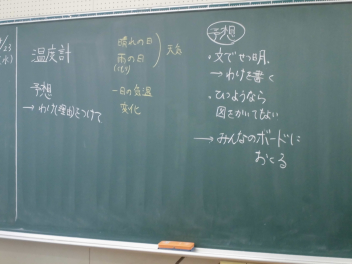 /23
(水)
温度計
予想
→わけ(理由)をつけて
晴れの日
雨の日
(くもり)
天気
一日の気温
変化
予想
・文でせつ明。
→わけを書く
・ひつようなら
図をかいてもよい
→みんなのボードに
おくる